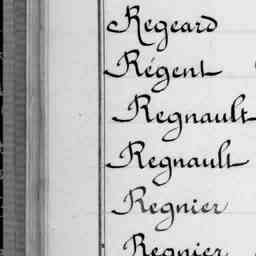 Regeard
Régent
Regnault
Regnault
Regnier
Regnier